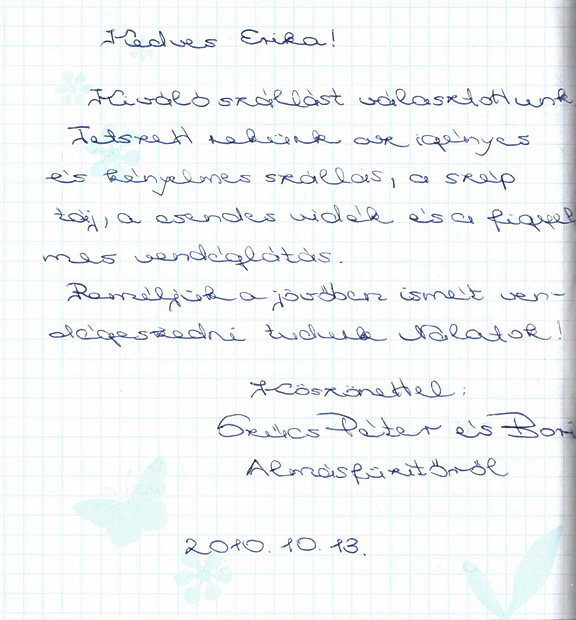 Kedves Erika!
Kiváló szállást választottunk
Tetszett nekünk az igényes
és kényelmes szállás, a szép
táj, a csendes vidék és a figyel
mes vendéglátás.
Reméljük a jövőben ismét ven-
dégeskedni tudunk Nálatok!
Köszönettel:
Szűcs Péter és Bori
Almásfüzitőről
2010. 10. 13.